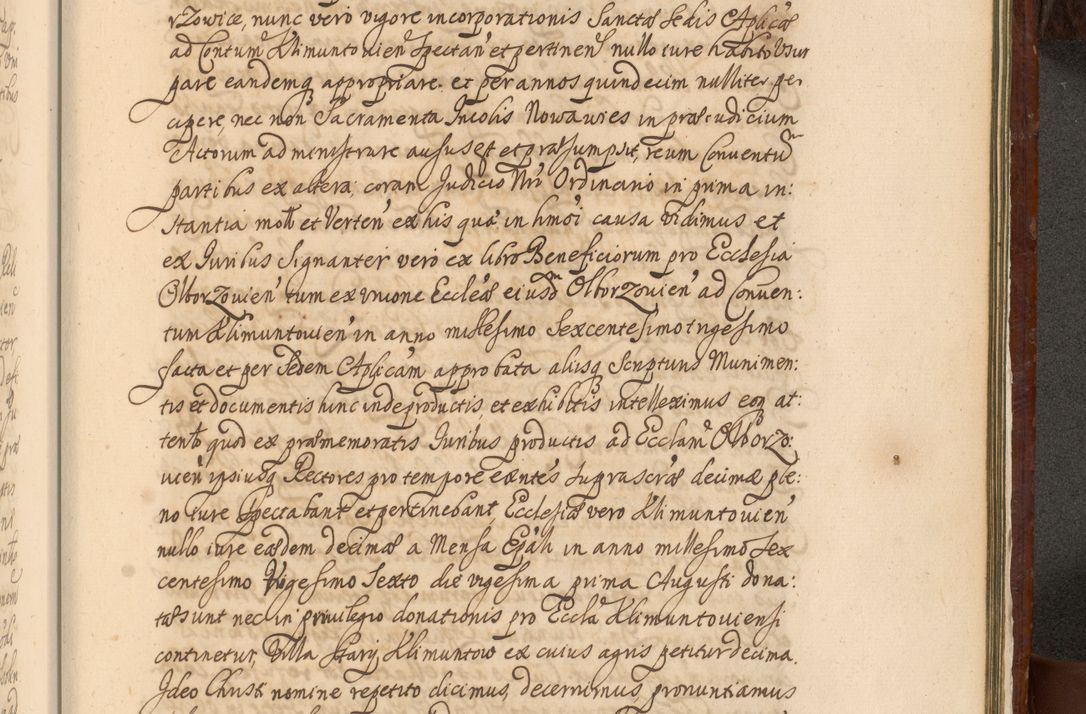 rzowice, nunc vero vigore incorporationis Sanctæ Sedis Aplicæ
ad Contum Klimuntouien spectan et pertinen nullo iure habito Usur
pare eandemq appropriare. et per annos quindecim nulliter per
cipere, nec non Sacramenta Incolis Nowawies in præiudicium
Actorum administrare ausus est et præsumpsit, reum Conventum
partibus ex altera; coram Judicio Nro Ordinario in prima in:
stantia mott et Verten ex his quæ in hmoi causa vidimus et
ex Juribus signanter vero ex libro Beneficiorum pro Ecclesia
Olborzouien tum ex unione Eccleæ eiusdm Olborzouien ad Conven:
tum Klimuntouien in anno millesimo Sexcentesimo trigesimo
facta et per Sedem Aplicam approbata aliisq Scripturis Munimen:
tis et documentis hinc inde productis et exhibitis intelleximus eoq at:
tento quod ex præmemoratis Juribus productis ad Ecclam Olborzo:
uien ipsiusq Rectores pro tempore exntes suprascræ decimæ ple:
no iure spectabant et pertinebant, Ecclesiæ vero Klimuntouien
nullo iure eædem decimæ a Mensa Epali in anno millesimo Sex
centesimo Vigesimo Sexto die vigesima prima Augusti dona:
tæ sunt nec in privilegio donationis pro Eccla Klimuntouiensi
continetur, Villa Stary Klimuntow ex cuius agris petitur decima.
Ideo Christi nomine repetito dicimus, decernimus, pronuntiamus